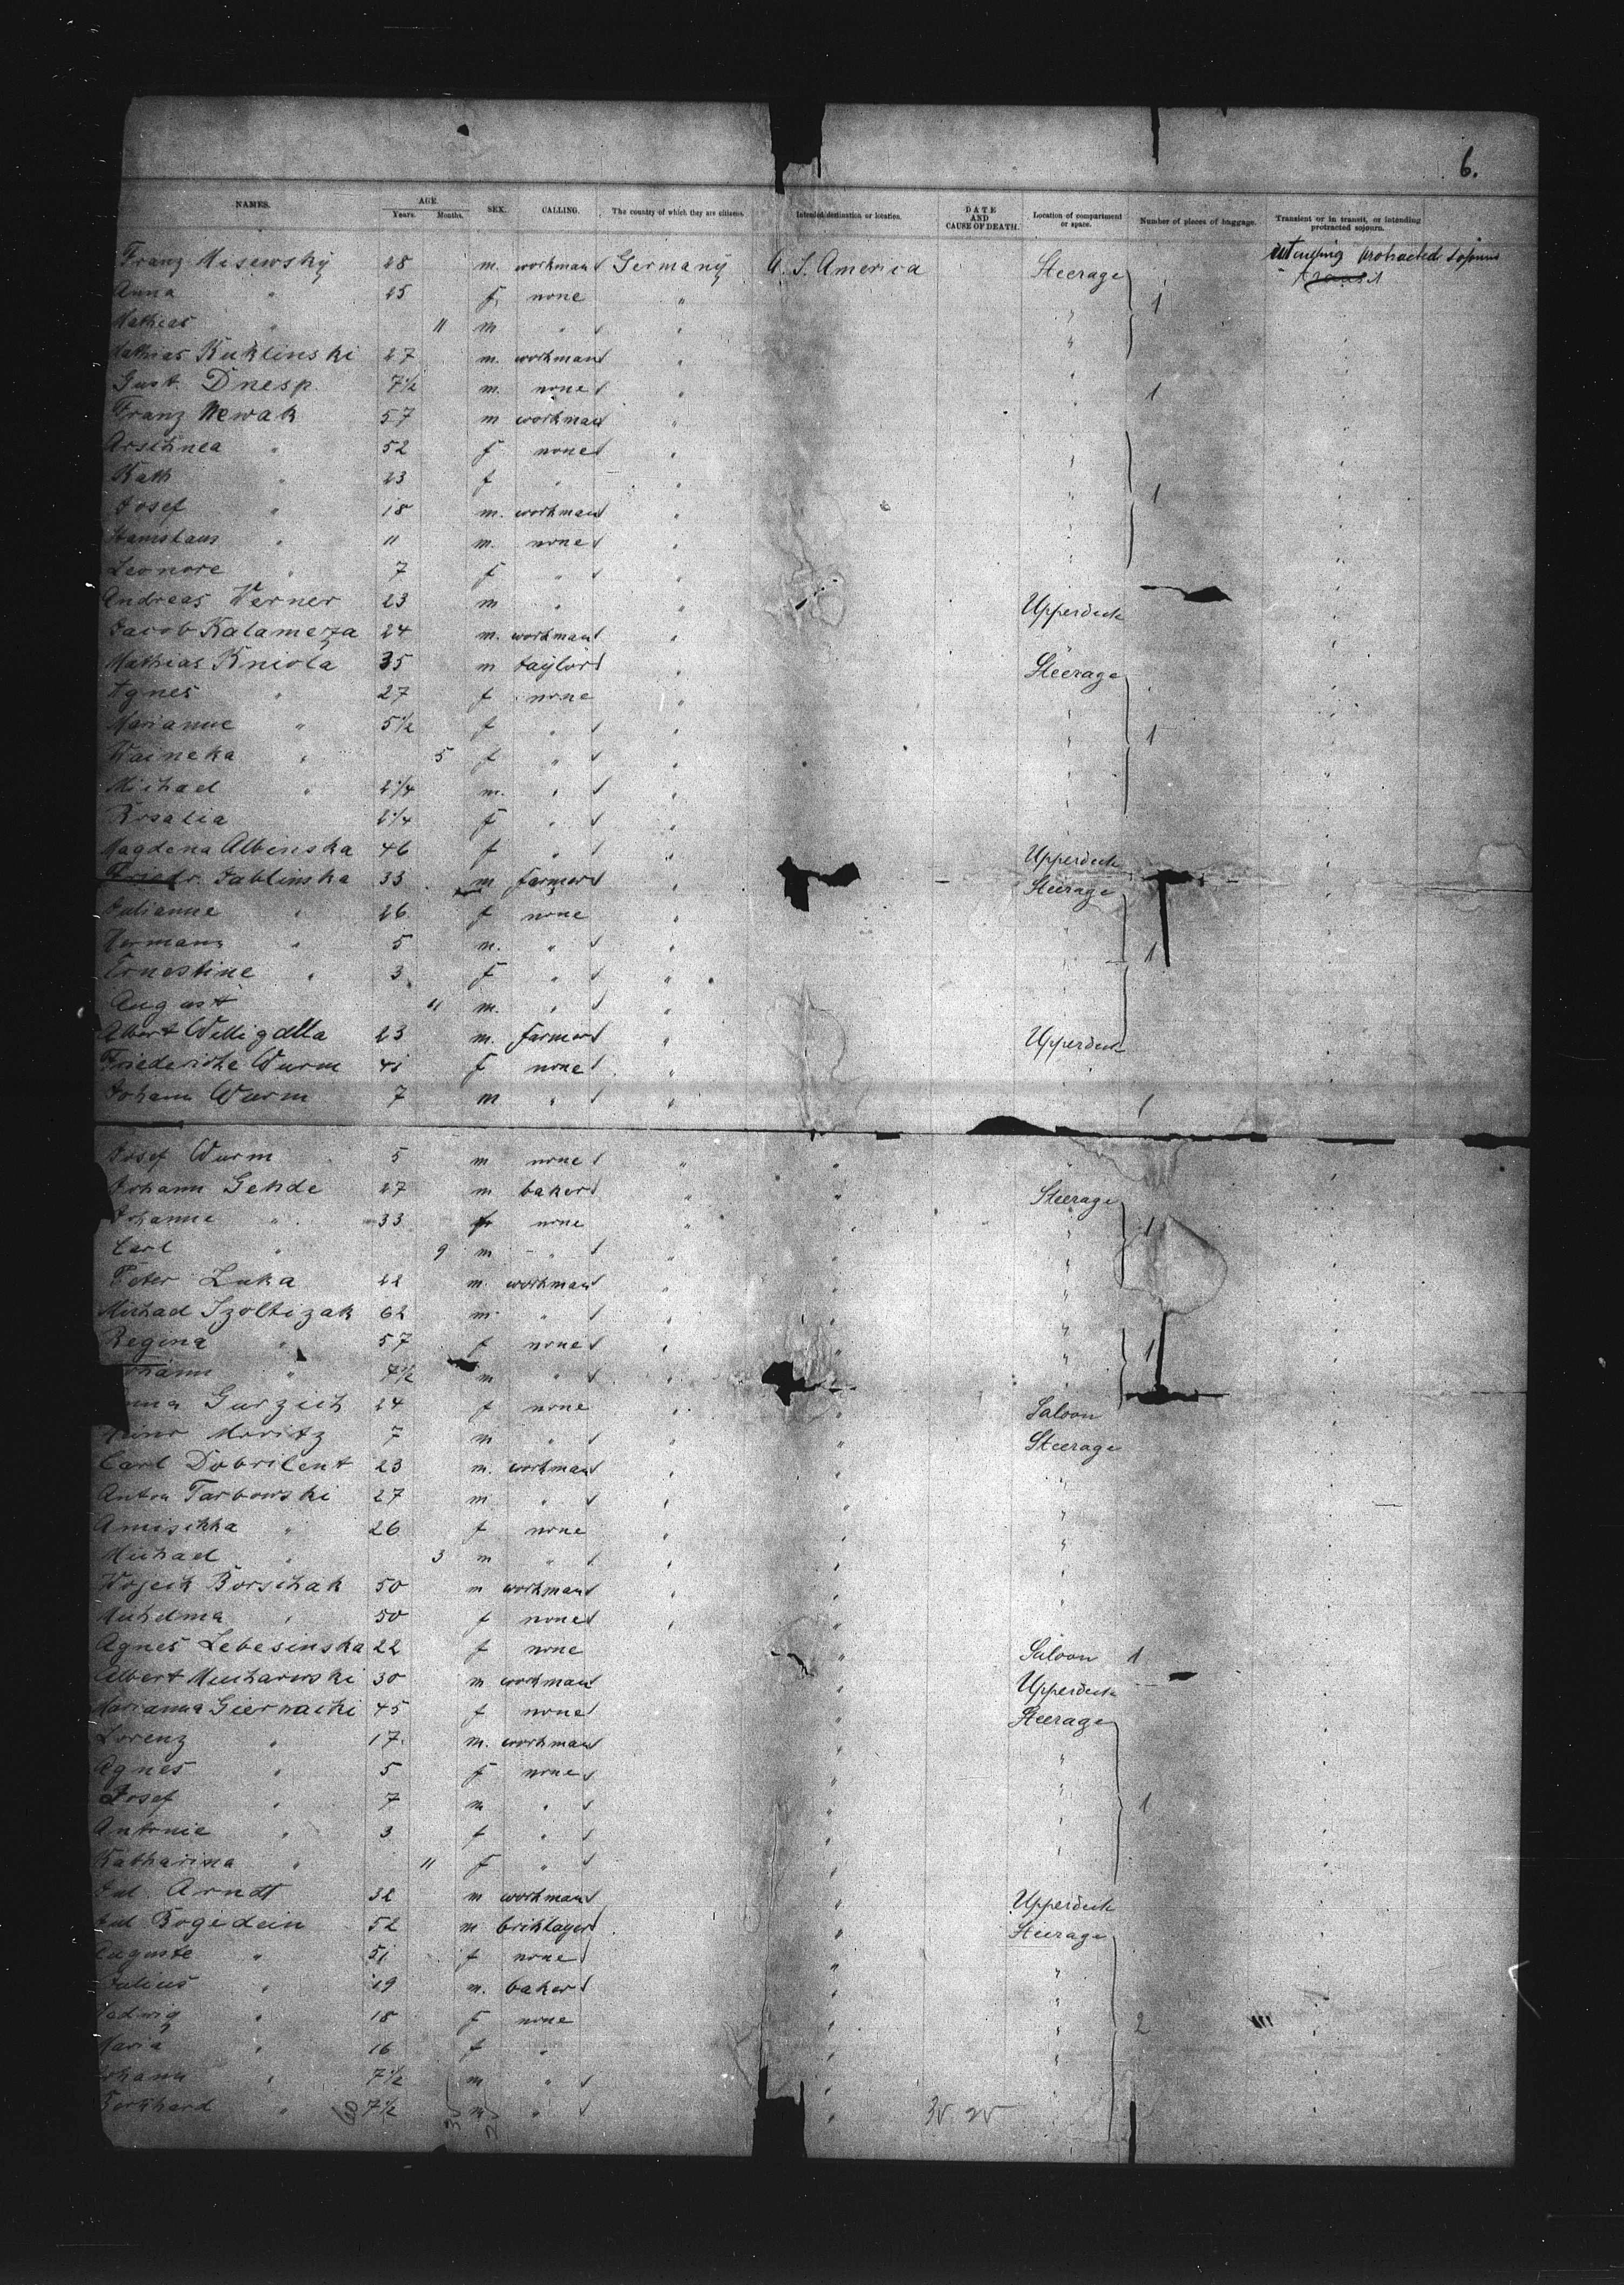 6.
NAMES. AGE. Years. Months. SEX. CALLING. The country of which they are citizens. Intended destination or location. DATE AND CAUSE OF DEATH. Location of compartment or space. Number of pieces of baggage. Transient or in transit, or intending protracted sojourn.
Franz Misewsky 28 m. workman Germany U. S. America Steerage protracted sojourn
Anna " 25 f. none " " 1 transit
Mathias " 11 m " " "
Mathias Kuklinski 27 m. workman " "
Gust. Dnesp. 7 1/2 m. none " " 1
Franz Newak 57 m workman " "
" 52 f none " "
Kath " 23 f " " " 1
Josef " 18 m. workman " "
Stanislaus " 11 m. none " "
Leonore " 7 f " " "
Andreas Werner 23 m " " Upperdeck
Jacob Kalameza 24 m. workman "
Mathias Kniola 35 m taylor " Steerage
Agnes " 27 f none " "
Marianne " 5 1/2 f " " " 1
Waineka " 5 f " " "
Michael " 2 1/4 m. " " "
Rosalia 2 1/4 f " " "
Magdena Albinska 46 f " " Upperdeck
Friedr. Jablinska 33 m farmer " Steerage
Julianne " 26 f none " "
Hermann " 5 m. " " " 1
Ernestine " 3 f " " "
August 11 m. " "
Albert Willigalla 23 m. farmer " Upperdeck
Friederike Wurm 41 f none "
Johann Wurm 7 m " "
Josef Wurm 5 m none " " "
Johann Gehde 27 m baker " " Steerage
Johanne " 33 f none " " " 1
Carl " 9 m " " " "
Peter Luka 22 m. workman " " "
Michael Szoltizak 62 m " " " "
Regina " 57 f none " " " 1
Johann " 7 1/2 m " " "
Gurzich 24 f none " " Saloon
Moritz 7 m " " " Steerage
Carl Dobrilent 23 m. workman " "
Anton Tarbowski 27 m " " " "
Amischka " 26 f none " " "
Michael " 3 m " " " "
Wojcik Borschak 50 m workman " " "
Michelma " 50 f none " "
Agnes Lebesinska 22 f none " Saloon 1
Albert Mucharwski 30 m workman " Upperdeck
Marianna Giernacki 45 f none " Steerage
Lorenz " 17 m. workman " "
Agnes " 5 f none " "
Josef " 7 m " " 1
Antonie " 3 f " " "
Katharina " 11 f " " "
Jul. Arndt 32 m workman " Upperdeck
Jul Bogidein 52 m briklayer " Steerage
Auguste " 51 f none "
Julius " 19 m. baker " "
Hedwig " 18 f none " " 2
Maria " 16 f " " "
Johann " 7 1/2 m " "
" 7 1/2 m " "